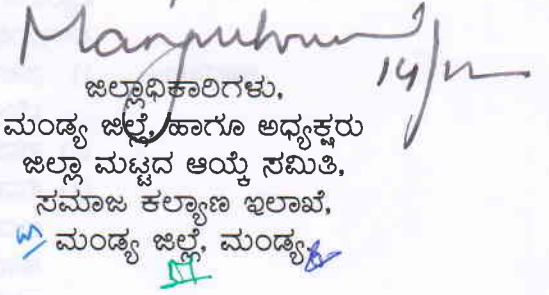 14/11
ಜಿಲ್ಲಾಧಿಕಾರಿಗಳು,
ಮಂಡ್ಯ ಜಿಲ್ಲೆ, ಹಾಗೂ ಅಧ್ಯಕ್ಷರು
ಜಿಲ್ಲಾ ಮಟ್ಟದ ಆಯ್ಕೆ ಸಮಿತಿ,
ಸಮಾಜ ಕಲ್ಯಾಣ ಇಲಾಖೆ,
ಮಂಡ್ಯ ಜಿಲ್ಲೆ, ಮಂಡ್ಯ